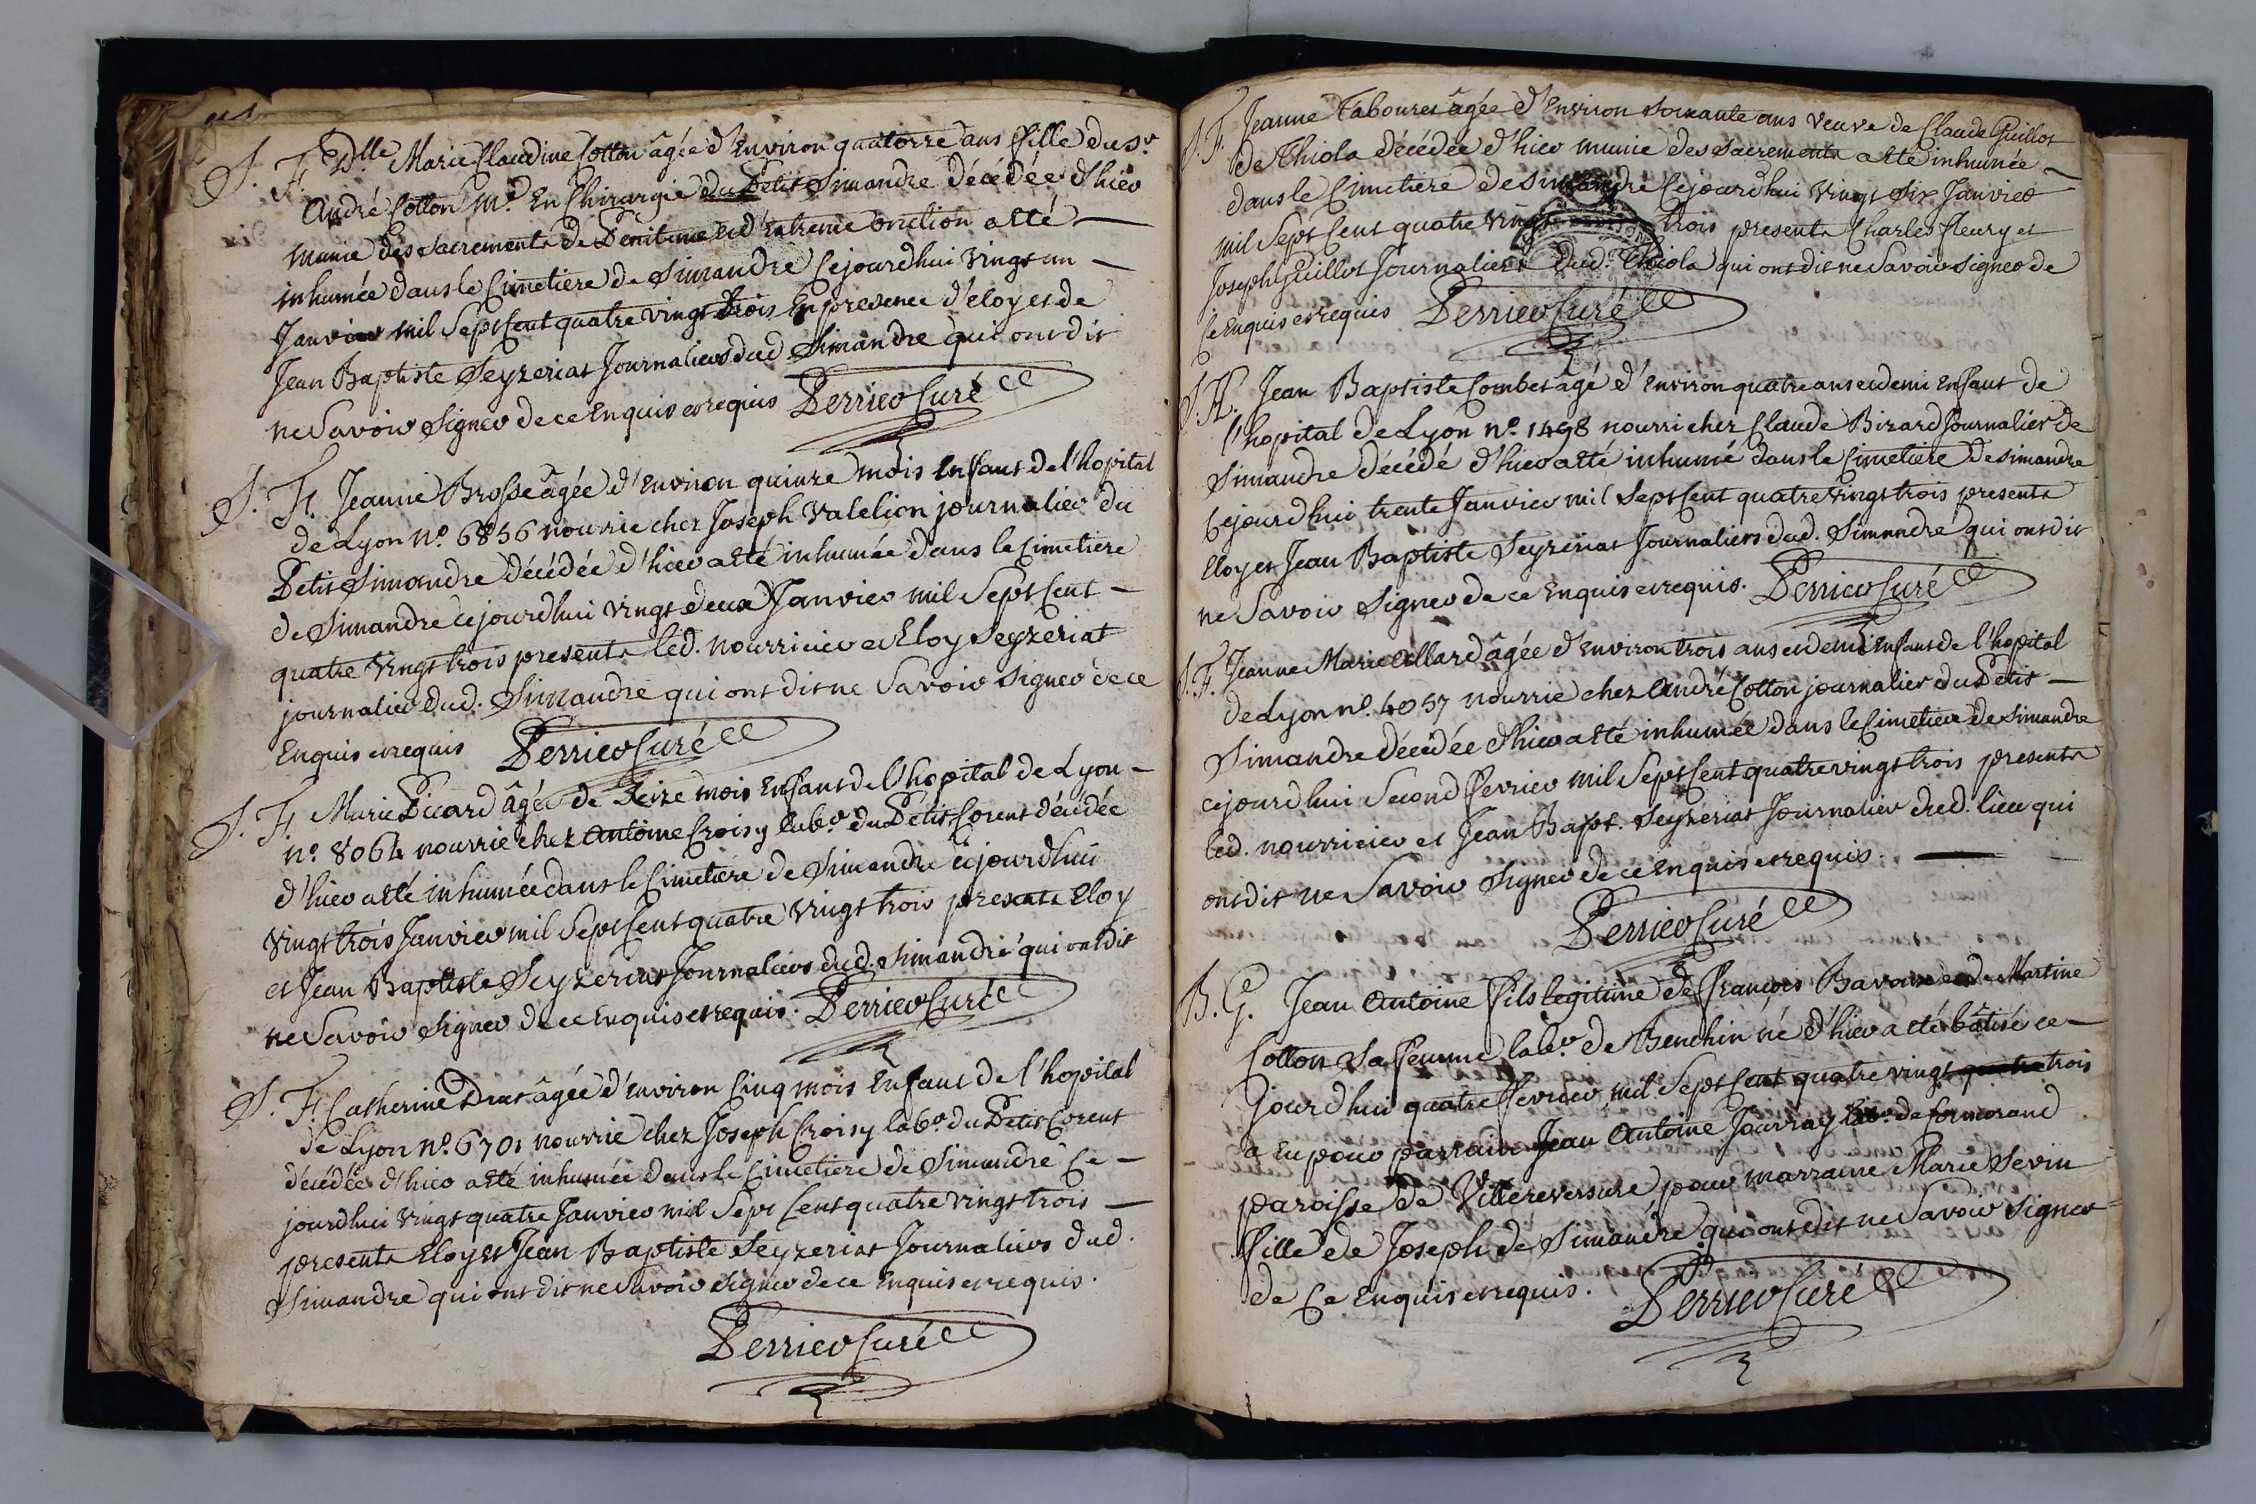 S. F. Dlle Marie Claudine Cotton âgée d'Environ quatorze ans fille du Sr
André Cotton Md En Chirurgie du Petit Simandre décédée d'hier
munie des sacrements de Penitence et d'Extreme onction a eté
inhumée dans le Cimetiere de Simandre Cejourdhui vingt un
Janvier mil Sept Cent quatre vingt trois En presence d'eloy et de
Jean Baptiste Seyzeriat Journaliers dud Simandre qui ont dit
ne Savoir Signer de ce Enquis et requis Perrier Curé
S. F. Jeanne Brosse âgée d'Environ quinze mois Enfant de l'hopital
de Lyon No. 6856 nourrie chez Joseph Valelion journalier du
Petit Simandre décédée d'hier a eté inhumée dans le Cimetiere
de Simandre cejourdhui vingt deux Janvier mil Sept Cent
quatre vingt trois presents led. nourricier et Eloy Seyzeriat
journalier dud. Simandre qui ont dit ne Savoir Signer de ce
Enquis et requis Perrier Curé
S. F. Marie Picard âgée de Seize mois Enfant de l'hopital de Lyon
no. 8064 nourrie chez Antoine Croisy labr. du Petit Corent décédée
d'hier a eté inhumée dans le Cimetiere de Simandre cejourdhui
vingt trois Janvier mil Sept Cent quatre vingt trois presents Eloy
et Jean Baptiste Seyzeriat Journaliers dud. Simandre qui ont dit
ne Savoir Signer de ce Enquis et requis. Perrier Curé
S. F. Catherine âgée d'environ Cinq mois Enfant de l'hopital
de Lyon no. 6701 nourrie chez Joseph Croisy labr. du Petit Corent
décédée d'hier a eté inhumée dans le Cimetiere de Simandre Ce
jourdhui vingt quatre Janvier mil Sept Cent quatre vingt trois
presents Eloy et Jean Baptiste Seyzeriat Journaliers dud.
Simandre qui ont dit ne Savoir Signer de ce Enquis et requis.
Perrier Curé
S. F. Jeanne Tabouret âgée d'Environ Soixante ans veuve de Claude Guillot
de Thiola décédée d'hier munie des Sacrements a eté inhumée
dans le Cimetiere de Simandre Cejourdhui vingt Six Janvier
mil Sept Cent quatre vingt trois presents Charles fleury et
Joseph Guillot Journaliers dud. Thiola qui ont dit ne Savoir Signer de
Ce Enquis et requis Perrier Curé
S. F. Jean Baptiste Combet âgé d'Environ quatre ans et demi Enfant de
l'hopital de Lyon no. 1498 nourri chez Claude Bizard Journalier de
Simandre décédé d'hier a eté inhumé dans le Cimetiere de Simandre
Cejourdhui trente Janvier mil Sept Cent quatre vingt trois presents
Eloy et Jean Baptiste Seyzeriat Journaliers dud. Simandre qui ont dit
ne Savoir Signer de ce Enquis et requis. Perrier Curé
S. F. Jeanne Marie Allard âgée d'Environ trois ans et demi Enfant de l'hopital
de Lyon no. 4057 nourrie chez André Cotton journalier du Petit
Simandre décédée d'hier a eté inhumée dans le Cimetiere de Simandre
cejourdhui Second fevrier mil Sept Cent quatre vingt trois presents
led. nourricier et Jean Bapt. Seyzeriat Journalier dud. lieu qui
ont dit ne Savoir Signer de ce Enquis et requis.
Perrier Curé
B. G. Jean Antoine fils legitime de françois Bavoux et de Martine
Cotton Sa femme labr. de Benchin né d'hier a eté bâtisé ce
jourdhui quatre fevrier mil Sept Cent quatre vingt trois
a Eu pour parrain Jean Antoine Jourray labr. de formorand
paroisse de Villereversure pour marraine Marie Sevin
fille de Joseph de Simandre qui ont dit ne Savoir Signer
de Ce Enquis et requis. Perrier Curé